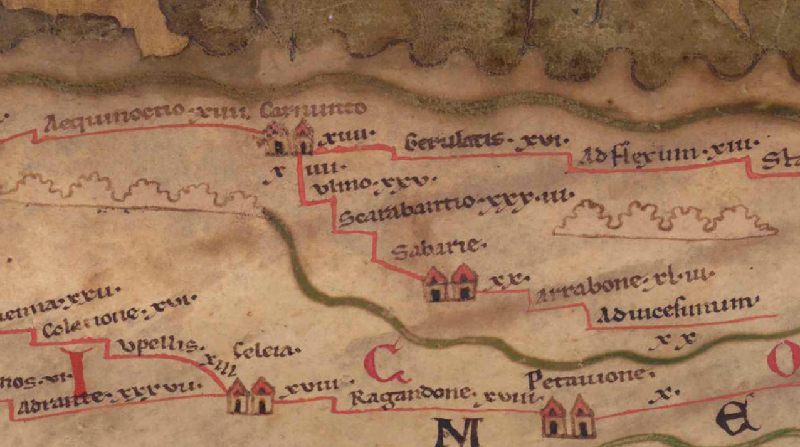 Aequinoctio·xiiii. Carnunto
xiiii· Gerulatis·xvi· Ad flexum·xiii· Sta
x iiii·
Vlmo·xxv·
Scarabantio·xxx·iii·
Sabarie·
xx· Arrabone·xl·iii·
Advicesimum·
xx
xvi·
upellis· xiii Celeia·
I C O
nos·vi·
Adrante·xxxvii· xviii· Ragandone·xviii· Petauione· x·
M E